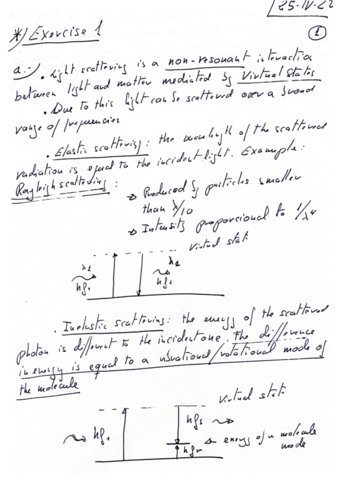 25-IV-22
1
*/ Exercise 1
a.- . Light scattering is a non-resonant interaction
between light and matter mediated by Virtual States
. Due to this light can be scattered over a broad
range of frequencies
. Elastic scattering: the wavelength of the scattered
radiation is equal to the incident light. Example:
Rayleigh scattering:
→ Produced by particles smaller
than λ/10
→ Intensity proporcional to 1/λ⁴
virtual stat.
. Inelastic scattering: the energy of the scattered
photon is different to the incident one. The difference
in energy is equal to a vibrational/rotational mode of
the molecule
virtual stat.
energy of a molecule
mode